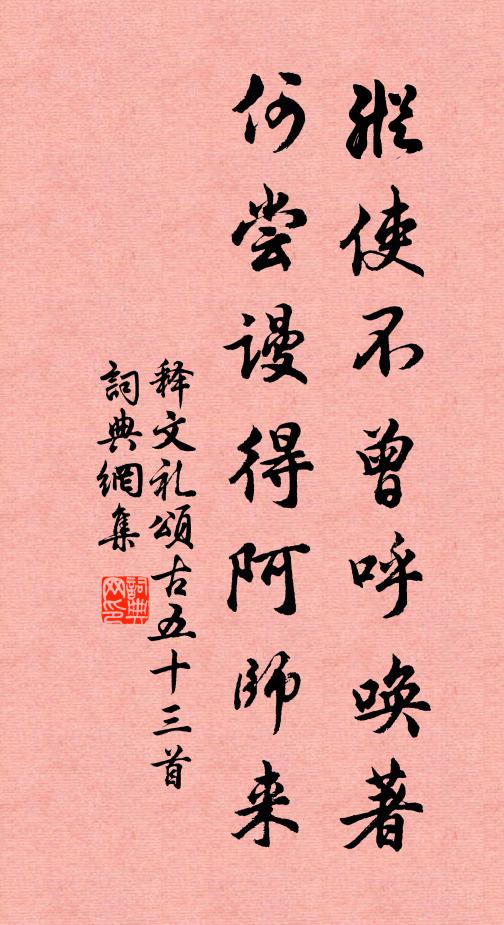 縱使不曾呼唤著
何尝謾得阿師来
释文礼頌古五十三首
詞典網集
詞典網印